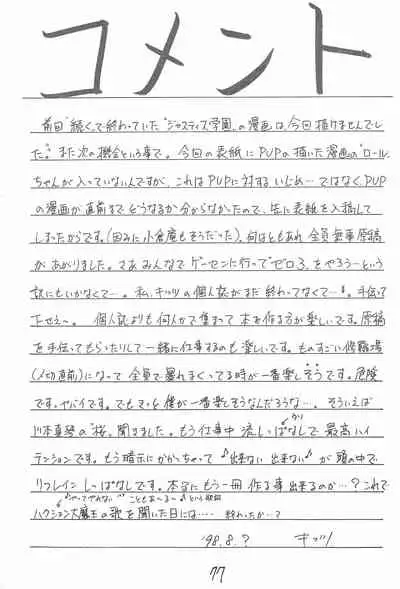 コメント
前回"続く"で終わっていた"ジャスティス学園"の漫画は、今回描けませんでし
た。また次の機会という事で。今回の表紙にPUPの描いた漫画の"ロール"
ちゃんが入っていないんですが、これはPUPに対するいじめ…ではなく、PUP
の漫画が直前までどうなるか分からなかったので、先に表紙を入稿して
しまったからです。(因みに小倉庵もそうだった)、何はともあれ全員無事原稿
があがりました。さあみんなでゲーセンに行って"ゼロ3"をやろう…という
訳にもいかなくて…。私、キッツの個人誌がまだ終わってなくて…。手伝って
下せえ〜。 個人誌よりも何人かで集まって本を作る方が楽しいです。原稿
を手伝ってもらったりして一緒に仕事するのも楽しいです。ものすごい修羅場
(〆切直前)になって全員で暴れまくってる時が一番楽しそうです。危険
です。ヤバイです。でもきっと僕が一番楽しそうなんだろうな…。そういえば
川本真琴の"桜"聞きました。もう仕事中流しっぱなしで最高ハイ
テンションです。もう暗示にかかっちゃって♪出来ない出来ない♪が頭の中で
リフレインしっぱなしです。本当にもう一冊作る事出来るのか…?これで
ハクション大魔王の歌を聞いた日には…… 終わったか…?
'98.8.? キッツ
77